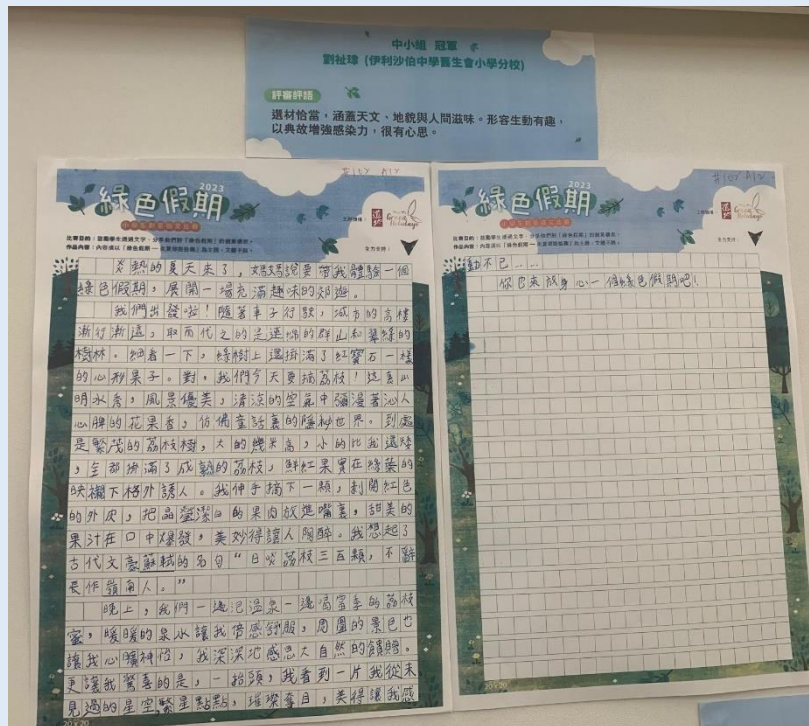 中小組 冠軍
劉祉瑋 (伊利沙伯中學舊生會小學分校)
評審評語
選材恰當，涵蓋天文、地貌與人間滋味。形容生動有趣，
以典故增強感染力，很有心思。
綠色假期
2023
比賽目的：
作品內容：
全力支持：
炎熱的夏天來了，媽媽說要帶我體驗一個
綠色假期，展開一場充滿趣味的郊遊。
我們出發啦！隨著車子行駛，城市的高樓
漸行漸遠，取而代之的是連綿的群山和翠綠的
樹林。細看一下，綠樹上還掛滿了紅寶石一樣
的心形果子。對，我們今天要摘荔枝！這裏山
明水秀，風景優美，清涼的空氣中彌漫著沁人
心脾的花果香，仿佛童話裏的隱秘世界。到處
是繁茂的荔枝樹，大的幾米高，小的比我還矮
，全部掛滿了成熟的荔枝，鮮紅果實在綠葉的
映襯下格外誘人。我伸手摘下一顆，剝開紅色
的外皮，把晶瑩潔白的果肉放進嘴裏，甜美的
果汁在口中爆發，美妙得讓人陶醉。我想起了
古代文豪蘇軾的名句“日啖荔枝三百顆，不辭
長作嶺南人。”
晚上，我們一邊泡溫泉一邊喝當季的荔枝
蜜，暖暖的泉水讓我倍感舒服，周圍的景色也
讓我心曠神怡，我深深地感恩大自然的饋贈。
更讓我驚喜的是，一抬頭，我看到一片我從未
見過的星空，繁星點點，璀璨奪目，美得讓我感
20 x 20
綠色假期
2023
比賽目的：
作品內容：
全力支持：
動不已……
你也來放身心一個綠色假期吧！
20 x 20